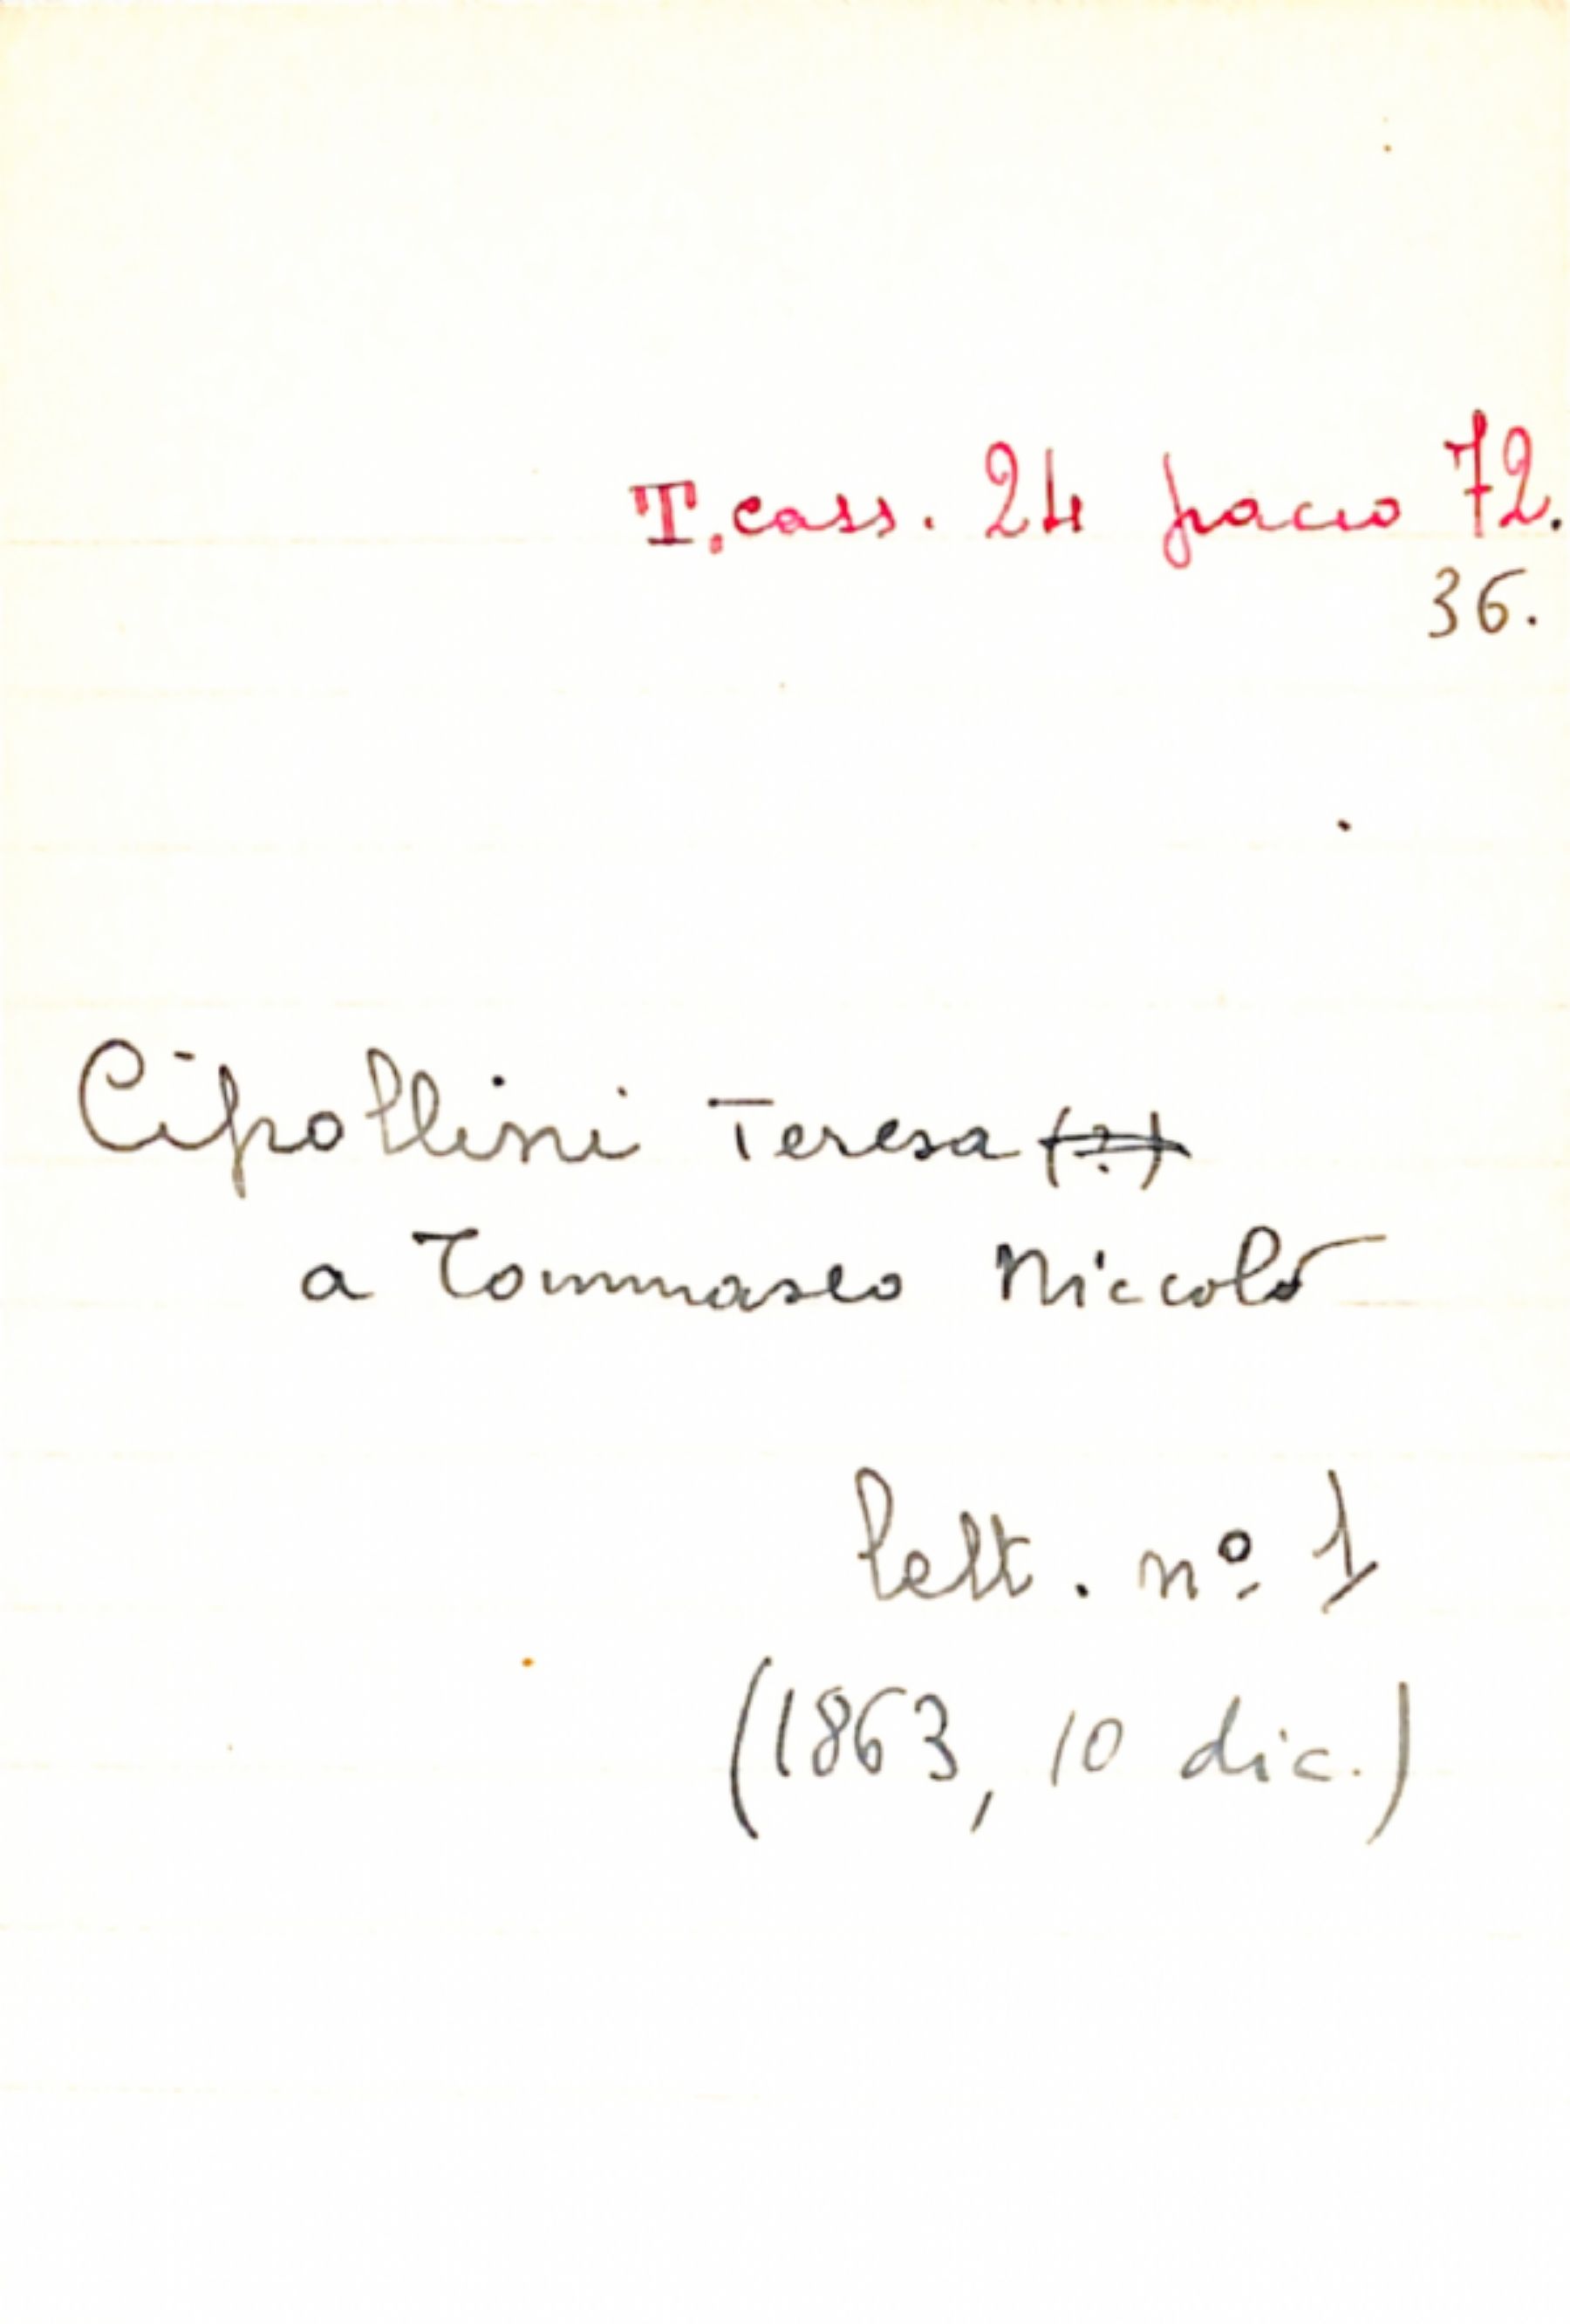 T. cass. 24 pacco 72.
36.
Cipollini Teresa (?)
a Tommaseo Niccolò
lett. nº 1
(1863, 10 dic.)